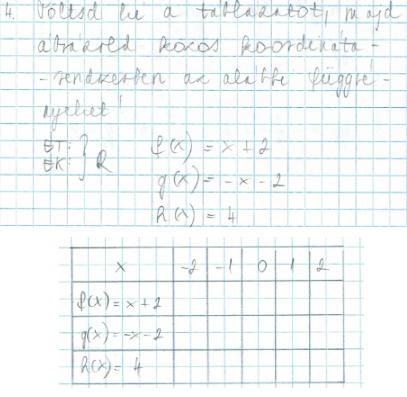 4. Töltsd ki a táblázatot, majd
ábrázold közös koordináta-
-rendszerben az alábbi függvé-
nyeket!
ÉT:
ÉK: } R
f(x) = x + 2
g(x) = -x - 2
h(x) = 4
x -2 -1 0 1 2
f(x) = x + 2
g(x) = -x - 2
h(x) = 4